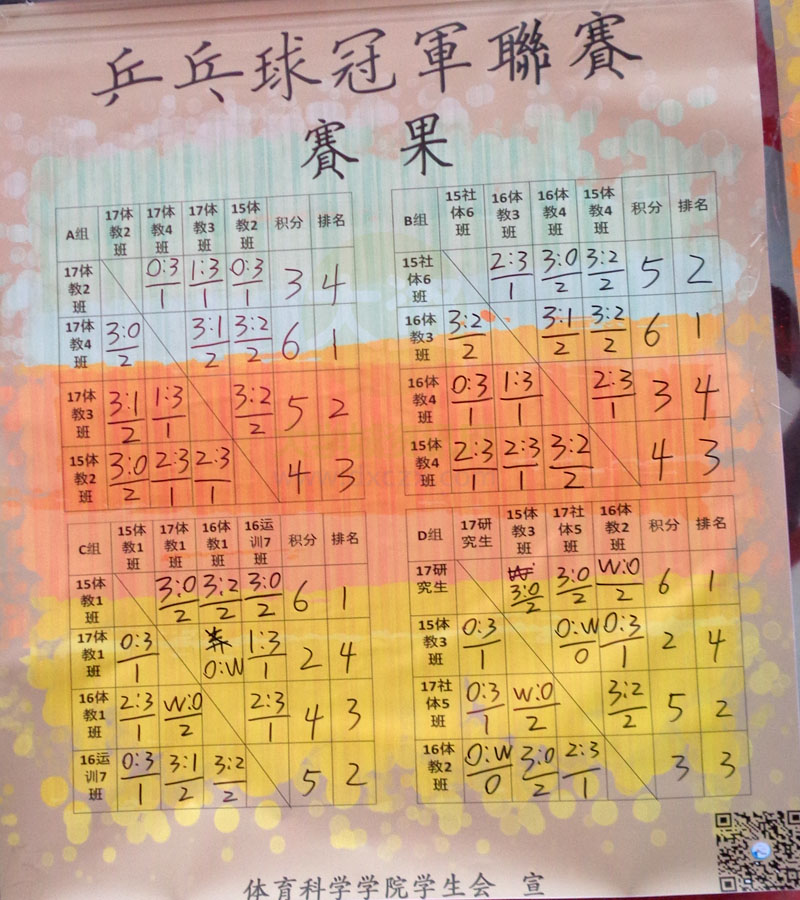 乒乓球冠軍聯賽
賽果
A组 17体教2班 17体教4班 17体教3班 15体教2班 积分 排名
17体教2班 0:3/1 1:3/1 0:3/1 3 4
17体教4班 3:0/2 3:1/2 3:2/2 6 1
17体教3班 3:1/2 1:3/1 3:2/2 5 2
15体教2班 3:0/2 2:3/1 2:3/1 4 3
B组 15社体6班 16体教3班 16体教4班 15体教4班 积分 排名
15社体6班 2:3/1 3:0/2 3:2/2 5 2
16体教3班 3:2/2 3:1/2 3:2/2 6 1
16体教4班 0:3/1 1:3/1 2:3/1 3 4
15体教4班 2:3/1 2:3/1 3:2/2 4 3
C组 15体教1班 17体教1班 16体教1班 16运训7班 积分 排名
15体教1班 3:0/2 3:2/2 3:0/2 6 1
17体教1班 0:3/1 0:W 1:3/1 2 4
16体教1班 2:3/1 W:0/2 2:3/1 4 3
16运训7班 0:3/1 3:1/2 3:2/2 5 2
D组 17研究生 15体教3班 17社体5班 16体教2班 积分 排名
17研究生 3:0/2 3:0/2 W:0/2 6 1
15体教3班 0:3/1 0:W/0 0:3/1 2 4
17社体5班 0:3/1 W:0/2 3:2/2 5 2
16体教2班 0:W/0 3:0/2 2:3/1 3 3
体育科学学院学生会 宣